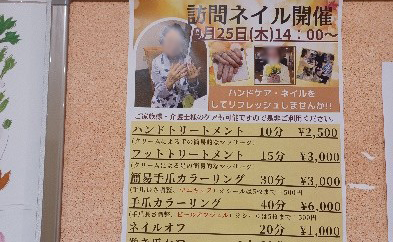 訪問ネイル開催
月25日(木)14：00～
ハンドケア・ネイルを
してリフレッシュしませんか!!
ご家族様・介護士様のケアも可能ですので是非ご利用ください。
ハンドトリートメント 10分 ¥2,500
(クリームによる手の簡易的なマッサージ)
フットトリートメント 15分 ¥3,000
簡易手爪カラーリング 30分 ¥3,000
手爪カラーリング 40分 ¥6,000
ネイルオフ 20分 ¥1,000